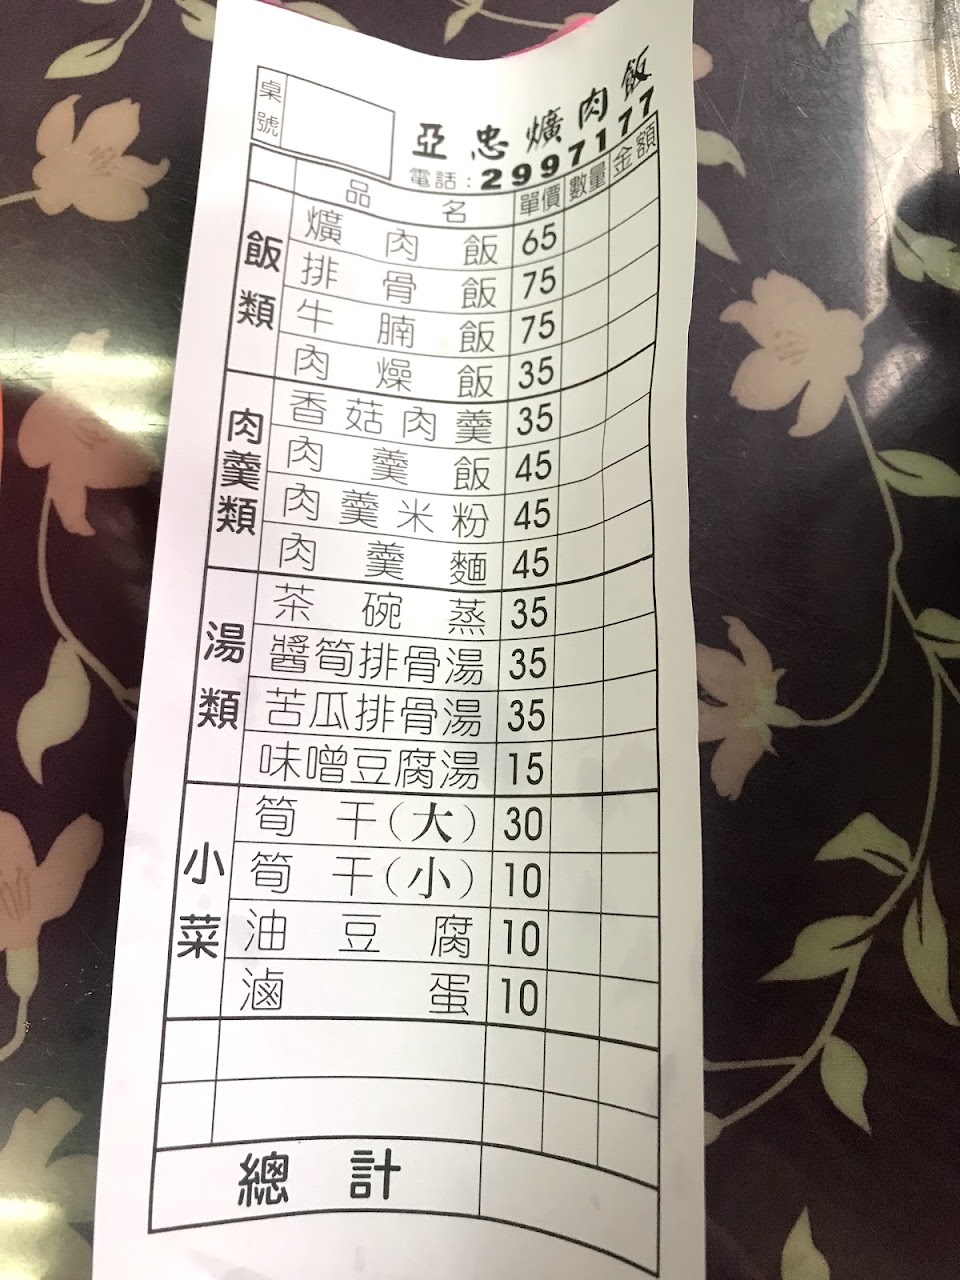 桌號
亞忠爌肉飯
電話：2997177
品名 單價 數量 金額
飯類
爌肉飯 65
排骨飯 75
牛腩飯 75
肉燥飯 35
肉羹類
香菇肉羹 35
肉羹飯 45
肉羹米粉 45
肉羹麵 45
湯類
茶碗蒸 35
醬筍排骨湯 35
苦瓜排骨湯 35
味噌豆腐湯 15
小菜
筍干(大) 30
筍干(小) 10
油豆腐 10
滷蛋 10
總計